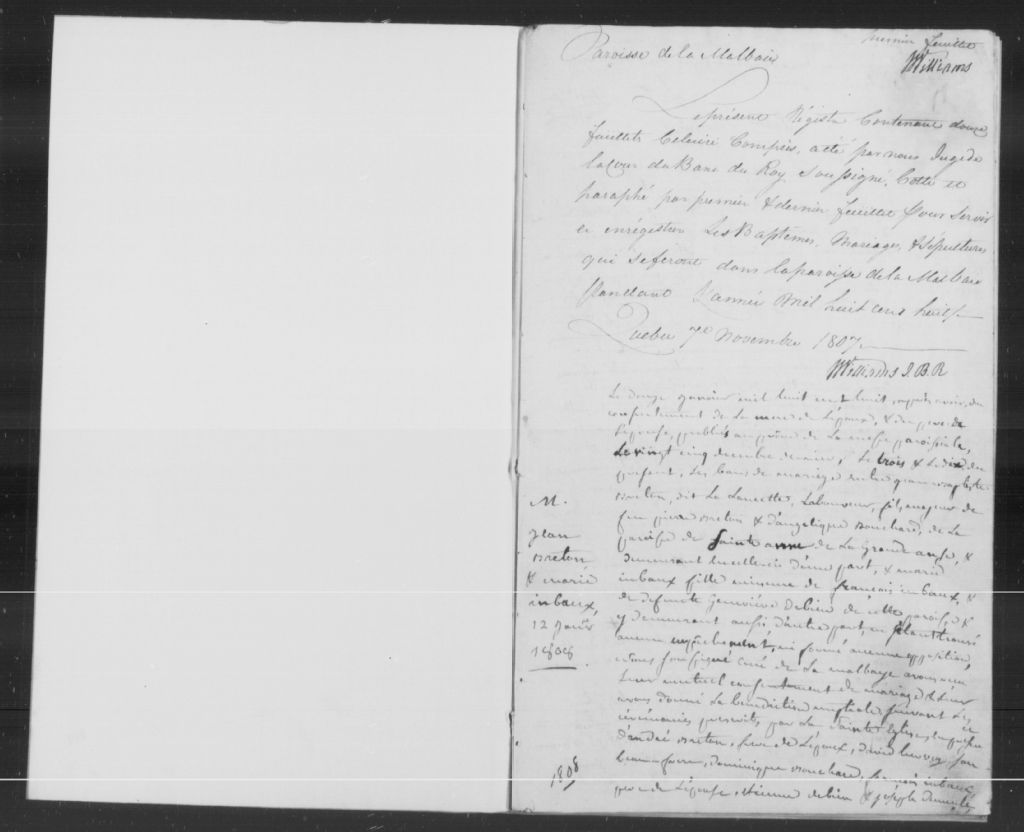 premier feuillet
Paroisse de la Malbaie
Williams
Le présent Régistre Contenant douze
feuillets Celuici Compris, a été par nous Juge de
la Cour du Banc du Roy Soussigné, Cotté et
paraphé par premier & dernier feuillet Pour Servir
à enrégistrer Les Baptêmes, Mariages, & Sépultures
qui se feront dans la paroisse de la Malbaie
Pendant L'année Mil huit cens huit
Quebec 7e Novembre 1807
Williams J. B. R
Le douze janvier mil huit cent huit, après avoir, du
consentement de La mere de L'époux, & du pere de
L'épouse, publié au prône de La messe paroissiale,
Le vingt cinq decembre dernier, Le trois & Le dix du
présent, Les bans de mariage entre jean baptiste
Breton, dit La Lancette, Laboureur, fils majeur de
feu pierre Breton & d'angelique Bouchard, de La
paroisse de Sainte anne de La Grande anse, &
demeurant en celle ci d'une part, & marie
imbaux fille mineure de françois imbaux, &
de defuncte Geneviève Debien de cette paroisse, &
y demeurant aussi d'autre part, ne s'étant trouvé
aucun empêchement, ni formé aucune opposition,
nous soussigné curé de La malbaye avons reçu
Leur mutuel consentement de mariage & Leur
avons donné La benediction nuptiale, suivant Les
cérémonies prescrites par La Sainte Eglise, en présence
d'andré Breton, frere de L'époux, david hervey son
beau frere, dominique Bouchard, françois imbaux
pere de L'épouse, etienne debien & joseph
M.
jean
Breton
& marie
imbaux,
12 janvr
1808
1808